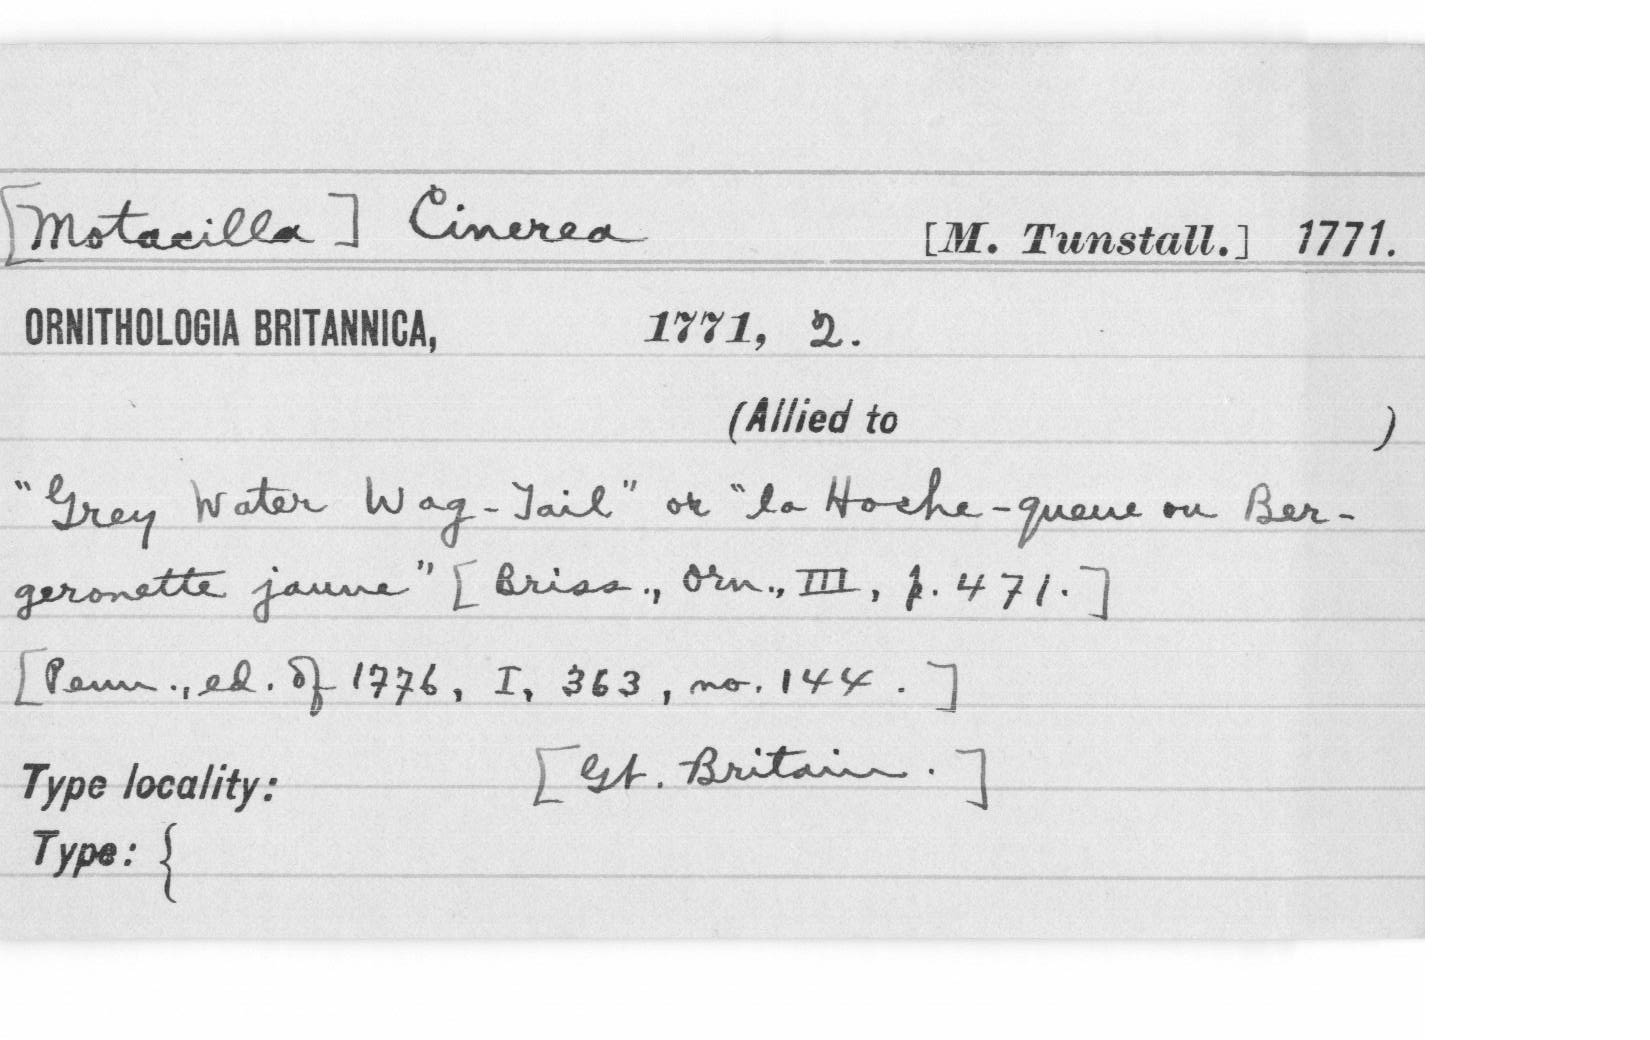 [Motacilla] Cinerea [M. Tunstall.] 1771.
ORNITHOLOGIA BRITANNICA, 1771, 2.
(Allied to )
"Grey Water Wag-Tail" or "la Hoche-queue ou Ber-
geronette jaune" [Briss., Orn., III, p. 471.]
[Penn., ed. of 1776, I, 363, no. 144.]
Type locality: [Gt. Britain.]
Type: {